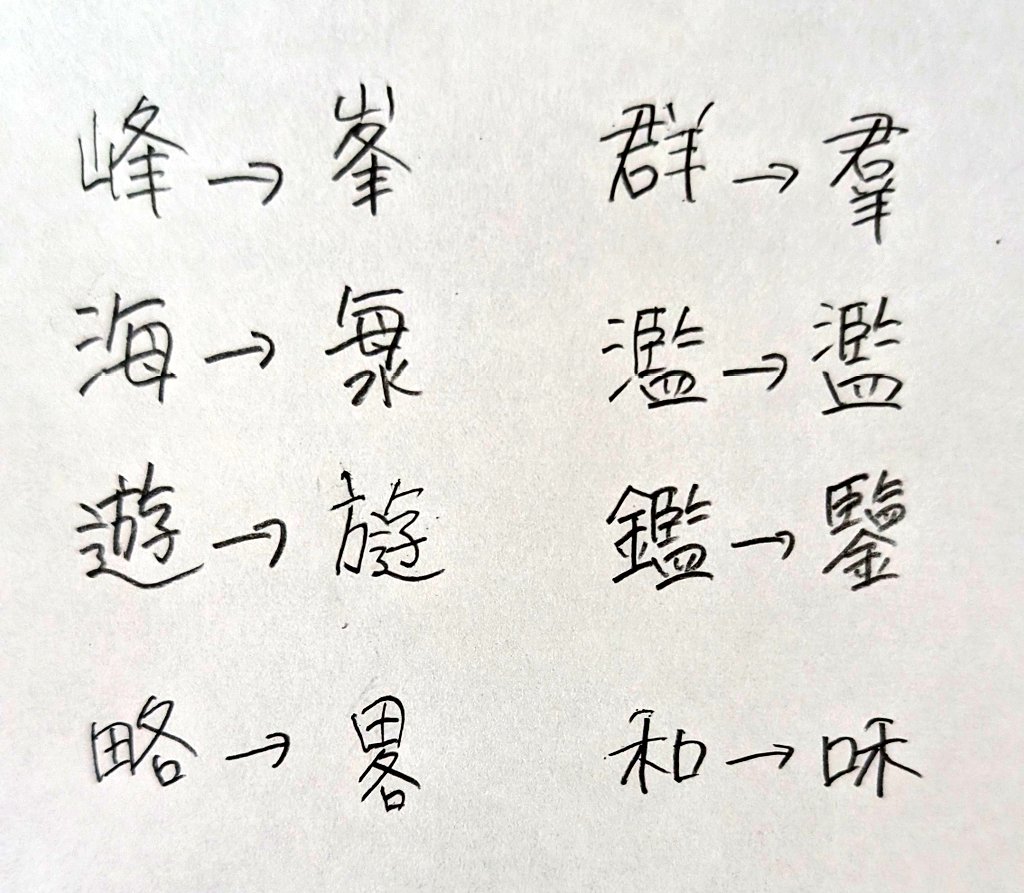 峰→峯 群→羣
海→𣴴 濫→濫
遊→遊 鑑→鑒
略→畧 和→咊